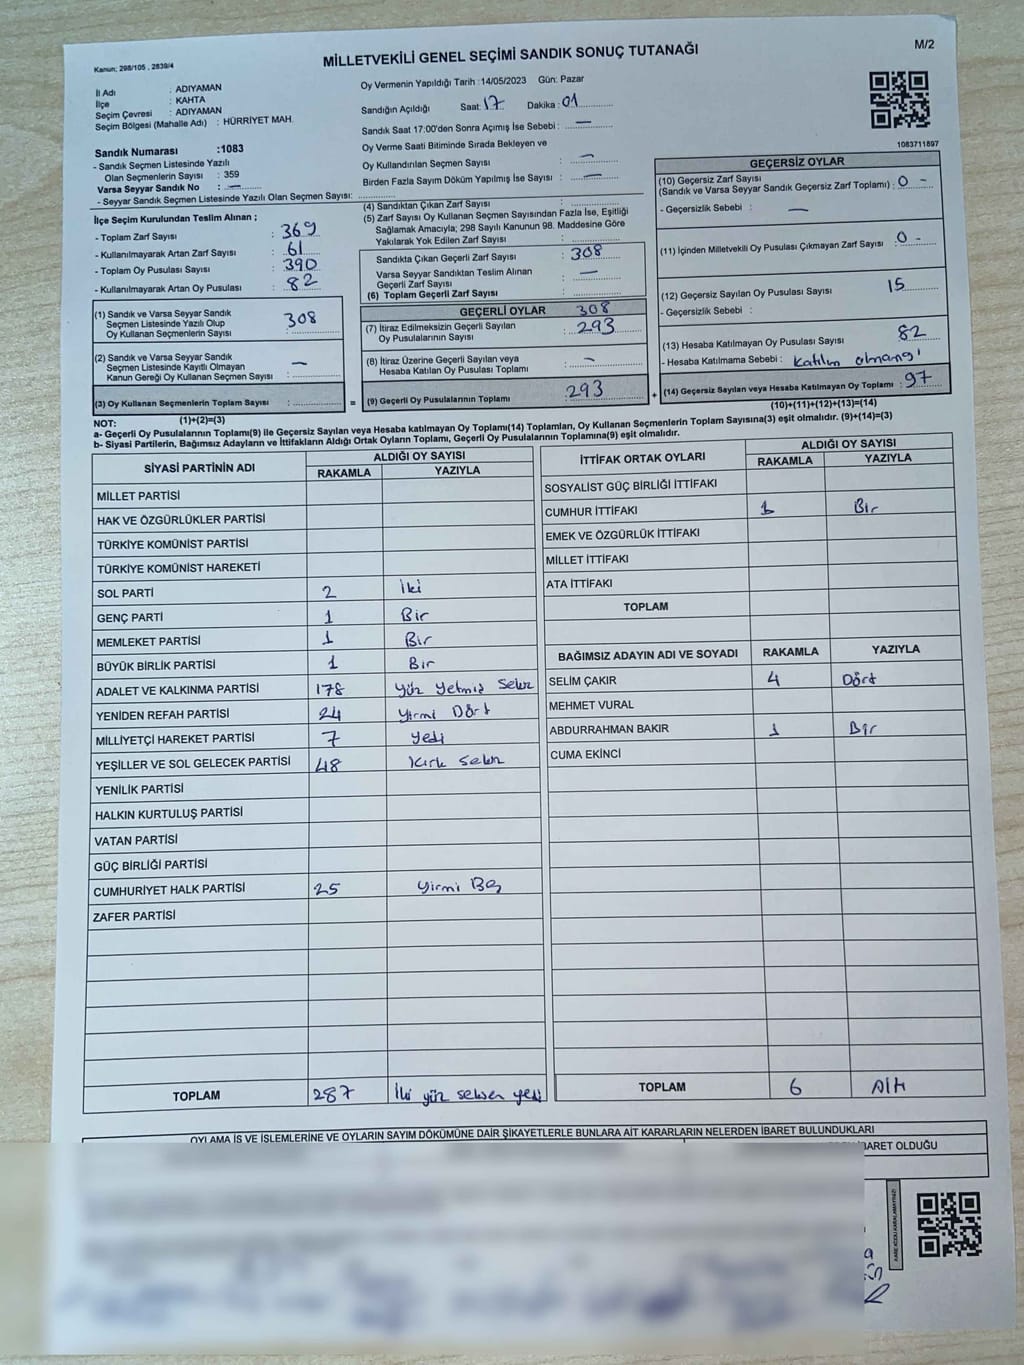 Kanun; 298/105 , 2839/4
MİLLETVEKİLİ GENEL SEÇİMİ SANDIK SONUÇ TUTANAĞI
M/2
İl Adı : ADIYAMAN
İlçe : KAHTA
Seçim Çevresi : ADIYAMAN
Seçim Bölgesi (Mahalle Adı) : HÜRRİYET MAH.
Sandık Numarası :1083
- Sandık Seçmen Listesinde Yazılı
Olan Seçmenlerin Sayısı : 359
Varsa Seyyar Sandık No : —
- Seyyar Sandık Seçmen Listesinde Yazılı Olan Seçmen Sayısı:
Oy Vermenin Yapıldığı Tarih : 14/05/2023 Gün: Pazar
Sandığın Açıldığı Saat: 17 Dakika : 01
Sandık Saat 17:00'den Sonra Açımış İse Sebebi : —
Oy Verme Saati Bitiminde Sırada Bekleyen ve
Oy Kullandırılan Seçmen Sayısı : —
Birden Fazla Sayım Döküm Yapılmış İse Sayısı : —
1083711897
İlçe Seçim Kurulundan Teslim Alınan ;
- Toplam Zarf Sayısı : 369
- Kullanılmayarak Artan Zarf Sayısı : 61
- Toplam Oy Pusulası Sayısı : 390
- Kullanılmayarak Artan Oy Pusulası : 82
(1) Sandık ve Varsa Seyyar Sandık
Seçmen Listesinde Yazılı Olup
Oy Kullanan Seçmenlerin Sayısı : 308
(2) Sandık ve Varsa Seyyar Sandık
Seçmen Listesinde Kayıtlı Olmayan
Kanun Gereği Oy Kullanan Seçmen Sayısı : —
(3) Oy Kullanan Seçmenlerin Toplam Sayısı :
(1)+(2)=(3)
(4) Sandıktan Çıkan Zarf Sayısı :
(5) Zarf Sayısı Oy Kullanan Seçmen Sayısından Fazla İse, Eşitliği
Sağlamak Amacıyla; 298 Sayılı Kanunun 98. Maddesine Göre
Yakılarak Yok Edilen Zarf Sayısı :
Sandıkta Çıkan Geçerli Zarf Sayısı : 308
Varsa Seyyar Sandıktan Teslim Alınan
Geçerli Zarf Sayısı : —
(6) Toplam Geçerli Zarf Sayısı :
GEÇERLİ OYLAR 308
(7) İtiraz Edilmeksizin Geçerli Sayılan
Oy Pusulalarının Sayısı : 293
(8) İtiraz Üzerine Geçerli Sayılan veya
Hesaba Katılan Oy Pusulası Toplamı : —
= (9) Geçerli Oy Pusulalarının Toplamı : 293 +
GEÇERSİZ OYLAR
(10) Geçersiz Zarf Sayısı
(Sandık ve Varsa Seyyar Sandık Geçersiz Zarf Toplamı) : 0 -
- Geçersizlik Sebebi : —
(11) İçinden Milletvekili Oy Pusulası Çıkmayan Zarf Sayısı : 0 -
(12) Geçersiz Sayılan Oy Pusulası Sayısı 15
- Geçersizlik Sebebi :
(13) Hesaba Katılmayan Oy Pusulası Sayısı : 82
- Hesaba Katılmama Sebebi : Katılım olmangı
(14) Geçersiz Sayılan veya Hesaba Katılmayan Oy Toplamı : 97
(10)+(11)+(12)+(13)=(14)
NOT:
a- Geçerli Oy Pusulalarının Toplamı(9) ile Geçersiz Sayılan veya Hesaba katılmayan Oy Toplamı(14) Toplamları, Oy Kullanan Seçmenlerin Toplam Sayısına(3) eşit olmalıdır. (9)+(14)=(3)
b- Siyasi Partilerin, Bağımsız Adayların ve İttifakların Aldığı Ortak Oyların Toplamı, Geçerli Oy Pusulalarının Toplamına(9) eşit olmalıdır.
SİYASİ PARTİNİN ADI ALDIĞI OY SAYISI
RAKAMLA YAZIYLA
MİLLET PARTİSİ
HAK VE ÖZGÜRLÜKLER PARTİSİ
TÜRKİYE KOMÜNİST PARTİSİ
TÜRKİYE KOMÜNİST HAREKETİ
SOL PARTİ 2 İki
GENÇ PARTİ 1 Bir
MEMLEKET PARTİSİ 1 Bir
BÜYÜK BİRLİK PARTİSİ 1 Bir
ADALET VE KALKINMA PARTİSİ 178 Yüz Yetmiş Sekiz
YENİDEN REFAH PARTİSİ 24 Yirmi Dört
MİLLİYETÇİ HAREKET PARTİSİ 7 Yedi
YEŞİLLER VE SOL GELECEK PARTİSİ 48 Kırk Sekiz
YENİLİK PARTİSİ
HALKIN KURTULUŞ PARTİSİ
VATAN PARTİSİ
GÜÇ BİRLİĞİ PARTİSİ
CUMHURİYET HALK PARTİSİ 25 Yirmi Beş
ZAFER PARTİSİ
TOPLAM 287 İki yüz seksen yedi
İTTİFAK ORTAK OYLARI ALDIĞI OY SAYISI
RAKAMLA YAZIYLA
SOSYALİST GÜÇ BİRLİĞİ İTTİFAKI
CUMHUR İTTİFAKI 1 Bir
EMEK VE ÖZGÜRLÜK İTTİFAKI
MİLLET İTTİFAKI
ATA İTTİFAKI
TOPLAM
BAĞIMSIZ ADAYIN ADI VE SOYADI RAKAMLA YAZIYLA
SELİM ÇAKIR 4 Dört
MEHMET VURAL
ABDURRAHMAN BAKIR 1 Bir
CUMA EKİNCİ
TOPLAM 6 Altı
OYLAMA İŞ VE İŞLEMLERİNE VE OYLARIN SAYIM DÖKÜMÜNE DAİR ŞİKAYETLERLE BUNLARA AİT KARARLARIN NELERDEN İBARET BULUNDUKLARI
BARET OLDUĞU